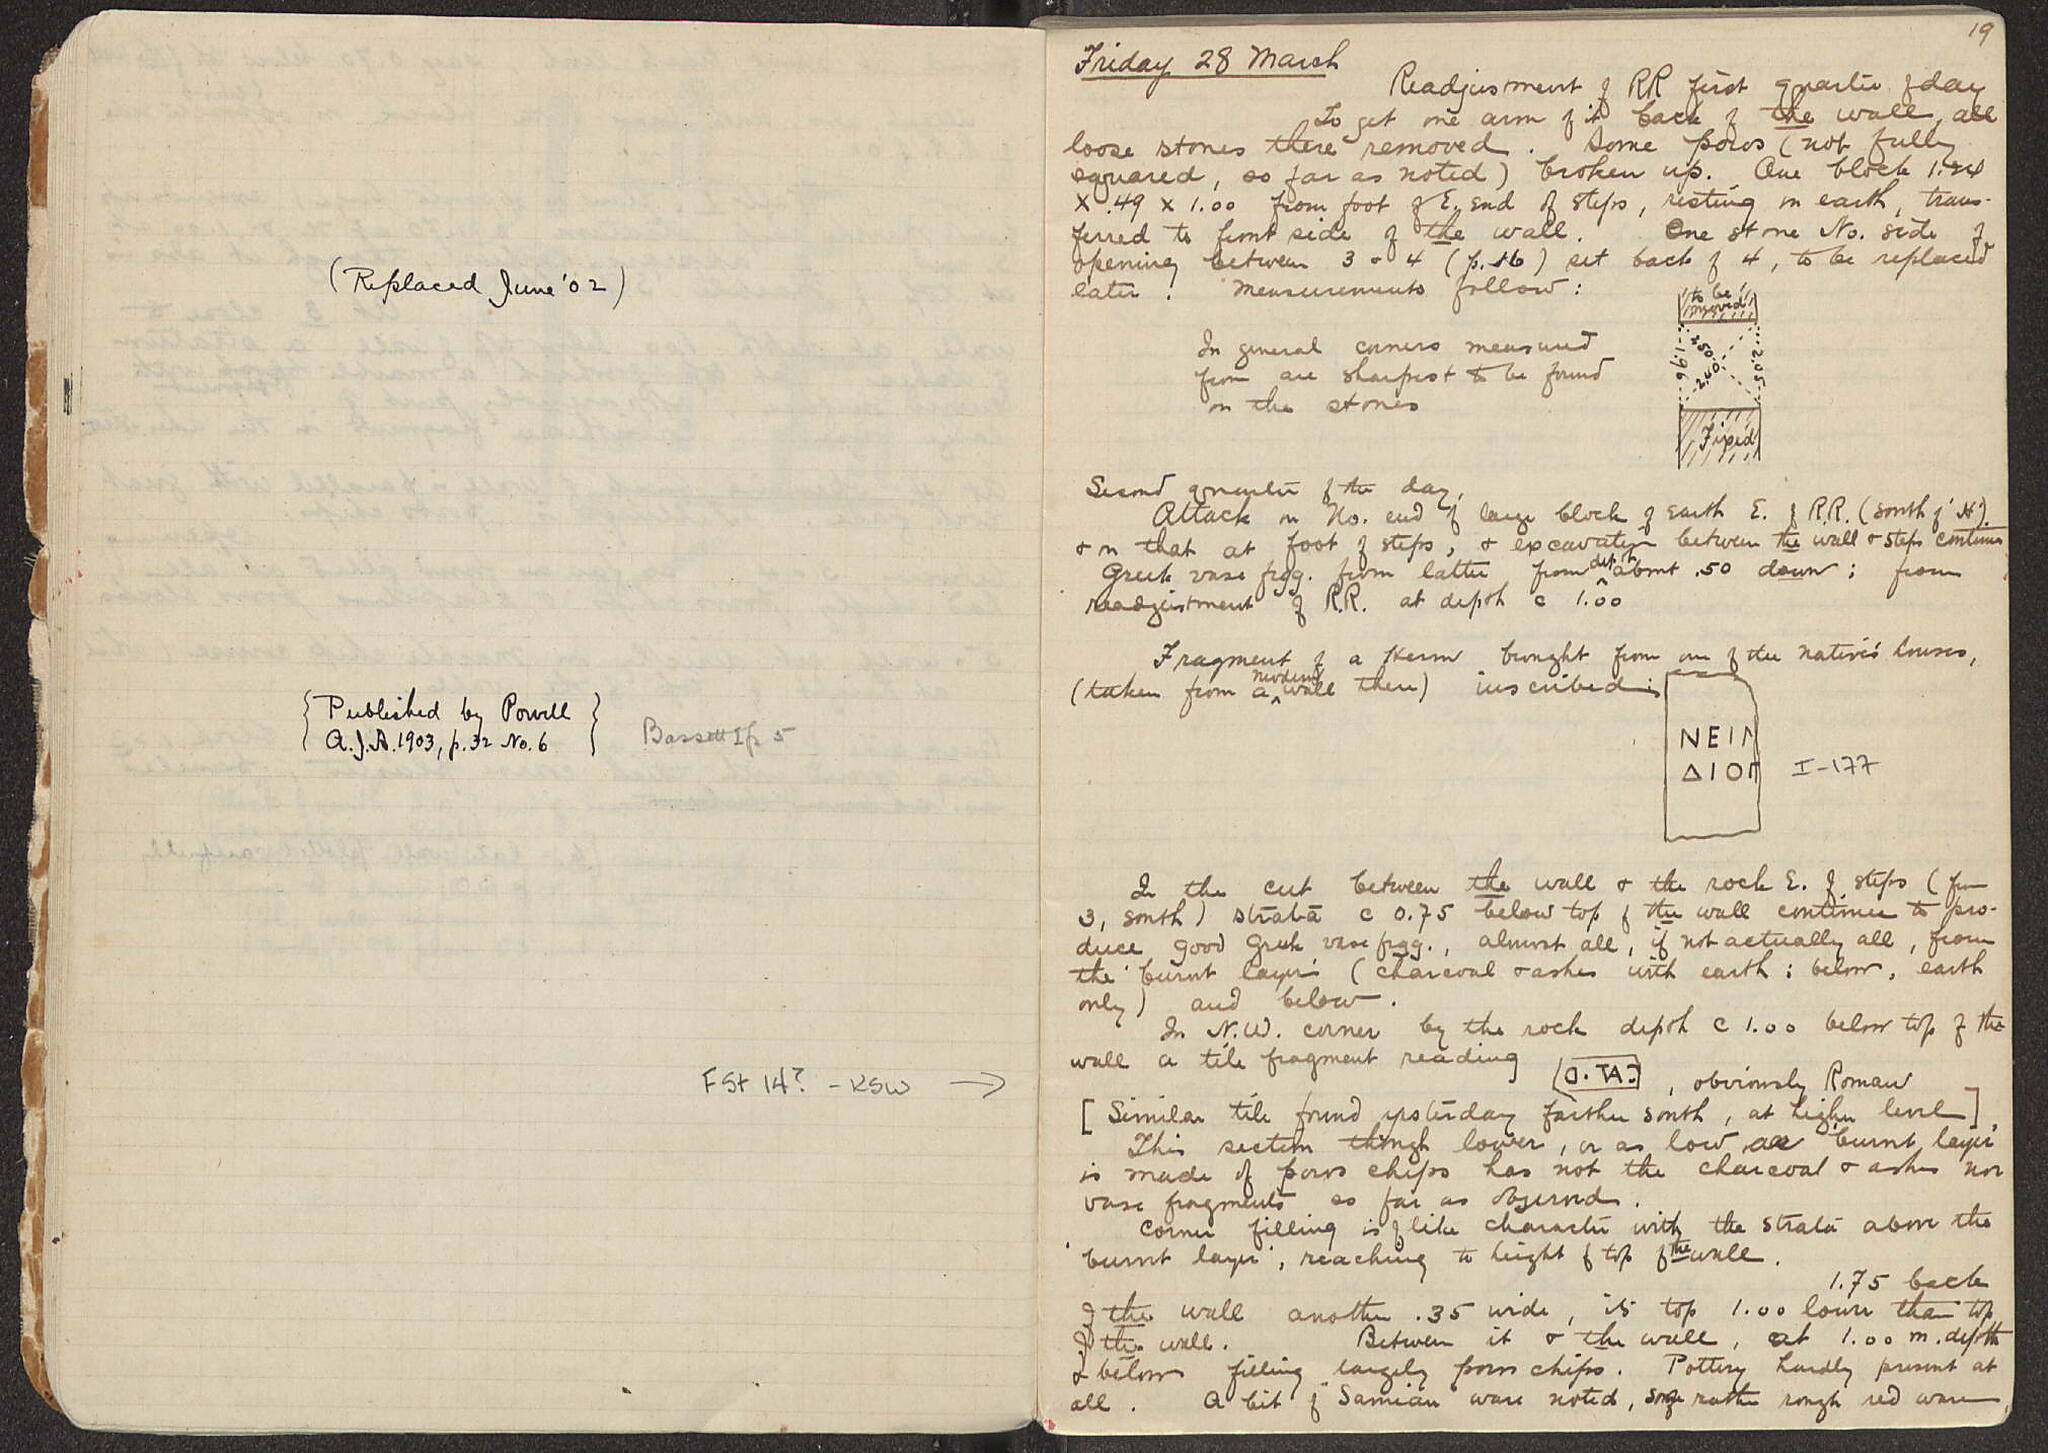 (Replaced June '02)
{Published by Powell
A.J.A. 1903, p. 32 No. 6}
Bassett I p 5
F St 14? - KSW →
19
Friday 28 March
Readjustment of RR first quarter of day
To get one arm of it back of the wall, all
loose stones there removed. Some poros (not fully
squared, so far as noted) broken up. One block 1.24
x .49 x 1.00 from foot of E. end of steps, resting on earth, trans-
ferred to front side of the wall. One stone No. side of
opening between 3 & 4 (p. 16) set back of 4, to be replaced
later. Measurements follow:
to be
moved
In general corners measured
from are sharpest to be found
on the stones
1.96
2.40
2.05
Fixed
Second quarter of the day,
Attack on No. end of large block of earth E. of R.R. (south of 'H').
& on that at foot of steps, & excavation between the wall & steps continues
Greek vase frgg. from latter from depth about .50 down; from
readjustment of R.R. at depth c 1.00
Fragment of a Herm brought from one of the natives houses,
(taken from a modern wall there) inscribed:
ΝΕΙΛ
ΔΙΟΓ
I-177
In the cut between the wall & the rock E. of steps (from
3, south) strata c 0.75 below top of the wall continue to pro-
duce good Greek vase frgg., almost all, if not actually all, from
the 'burnt layer' (charcoal & ashes with earth; below, earth
only) and below.
In N.W. corner by the rock depth c 1.00 below top of the
wall a tile fragment reading , obviously Roman
[Similar tile found yesterday farther south, at higher level].
This section though lower, or as low as burnt layer
is made of poros chips has not the charcoal & ashes nor
vase fragments so far as observed.
Corner filling is of like character with the strata above the
'burnt layer', reaching to height of top of the wall.
1.75 back
of the wall another .35 wide, its top 1.00 lower than top
of the wall. Between it & the wall, at 1.00 m. depth
& below filling largely poros chips. Pottery hardly present at
all. A bit of Samian ware noted, some rather rough red ware,